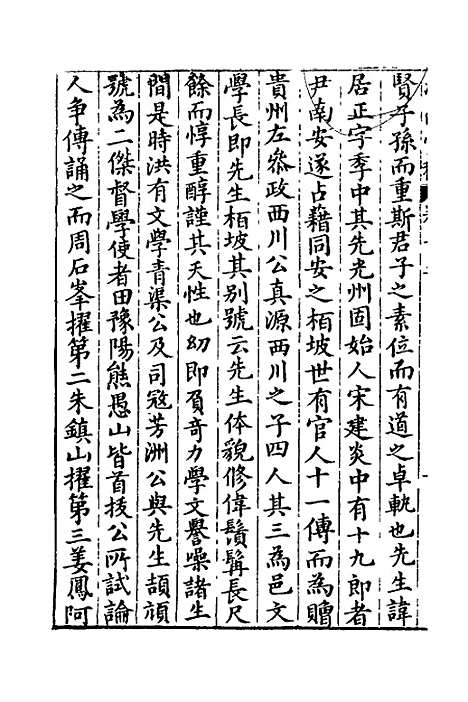 賢子孫而重斯君子之素位而有道之卓軌也先生諱
居正字季中其先光州固始人宋建炎中有十九郎者
尹南安遂占藉同安之栢坡世有官人十一傳而為贈
貴州左叅政西川公真源西川之子四人其三為邑文
學長即先生栢坡其别號云先生体貌修偉鬚髯長尺
餘而惇重醇謹其天性也幼即負奇力學文譽噪諸生
間是時洪有文學青渠公及司㓂芳洲公與先生頡頏
號為二傑督學使者田豫陽熊愚山皆首拔公所試論
人争傳誦之而周石峯擢第二朱鎮山擢第三姜鳳阿